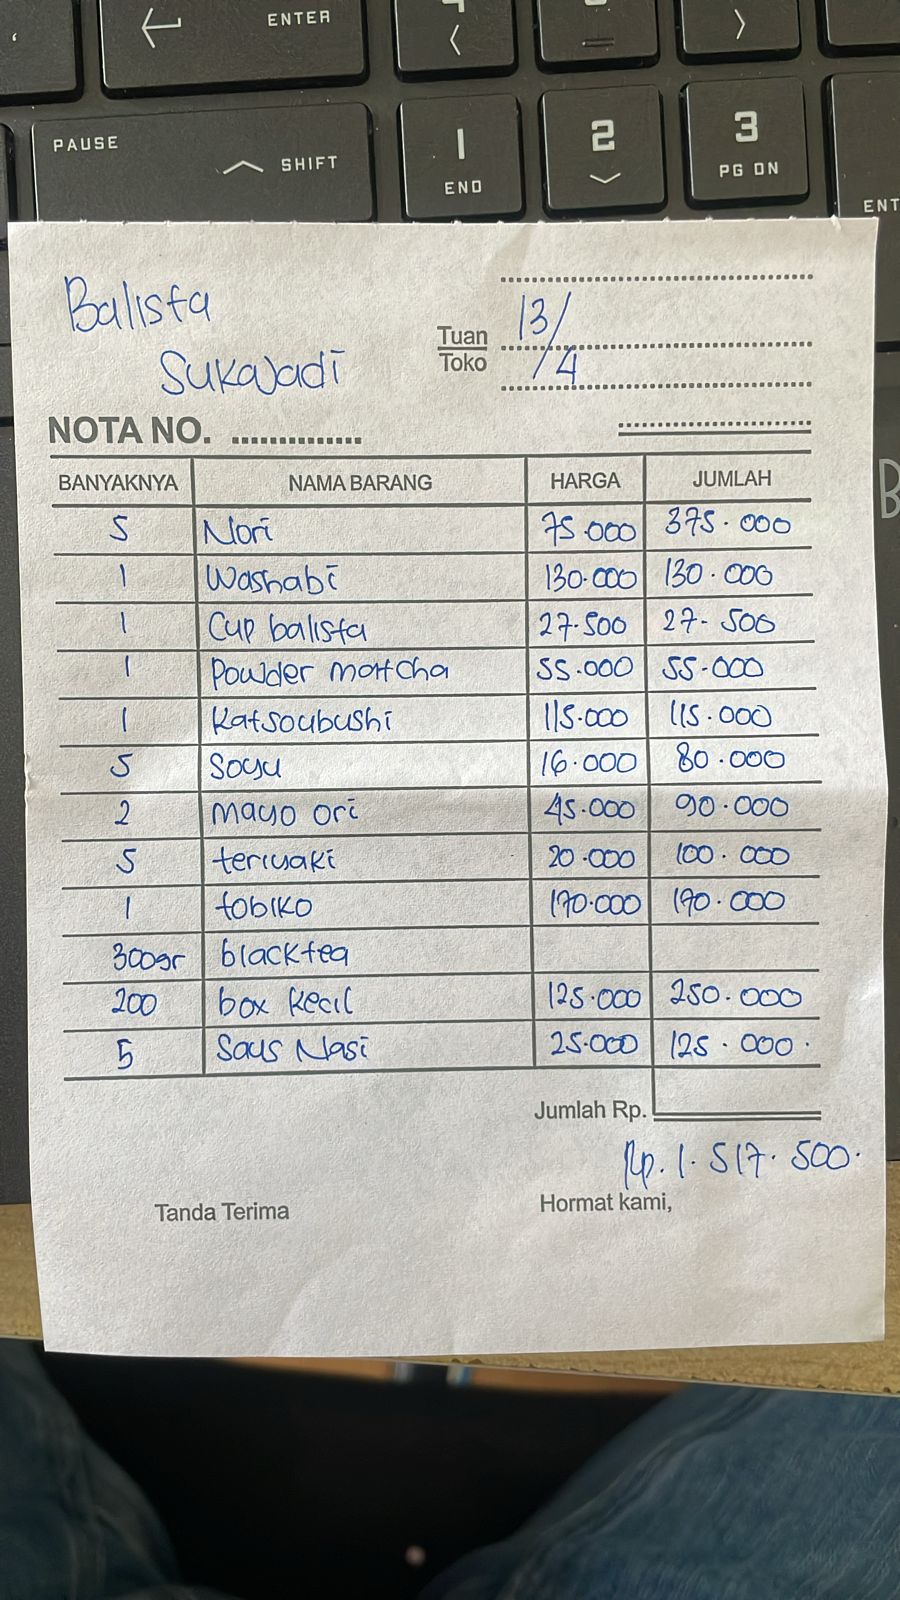 ENTER
PAUSE
SHIFT
1
END
2
3
PG DN
ENT
Balista
Sukajadi
Tuan
Toko
13/
/4
NOTA NO.
BANYAKNYA NAMA BARANG HARGA JUMLAH
5 Nori 75.000 375.000
1 Washabi 130.000 130.000
1 Cup balista 27.500 27.500
1 Powder matcha 55.000 55.000
1 Katsoubushi 115.000 115.000
5 Soyu 16.000 80.000
2 mayo ori 45.000 90.000
5 teriyaki 20.000 100.000
1 tobiko 170.000 170.000
300gr blacktea
200 box kecil 125.000 250.000
5 Saus Nasi 25.000 125.000.
Jumlah Rp.
Rp. 1.517.500.
Tanda Terima Hormat kami,